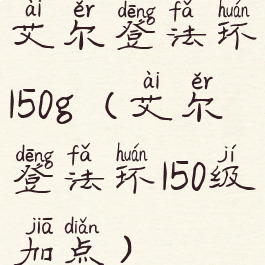 ài ěr dēng fǎ huán
艾尔登法环
ài ěr
150g（艾尔
dēng fǎ huán jí
登法环150级
jiā diǎn
加点）